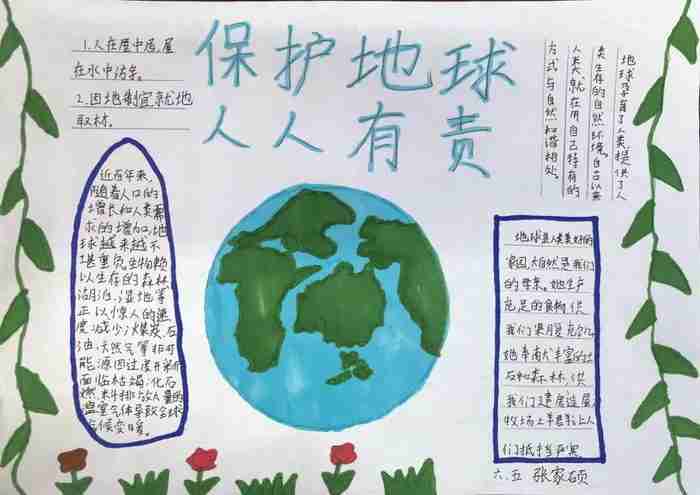 保护地球
人人有责
1.人在屋中居,屋
在水中沽亲。
2.因地制宜就地
取材。
地球孕育了人类,提供了人
类生存的自然环境。自古以来
人类就在用自己特有的
方式与自然和谐相处。
近百年来,
随着人口的
增长和人类需
求的增加,地
球越来越不
堪重负生物赖
以生存的森林
湖泊、湿地等
正以惊人的速
度减少;煤炭、石
油、天然气等非可
能源因过度开采而
面临枯竭;化石
燃料排放大量的
温室气体导致全球
气候变暖。
地球是人类美好的
家园,大自然是我们
的母亲。她生产
充足的食物,供
我们果腹充饥
她奉献丰富的土
石和森林,供
我们建房造屋
牧场上羊群让人
们抵挡严寒
六.五 张家硕